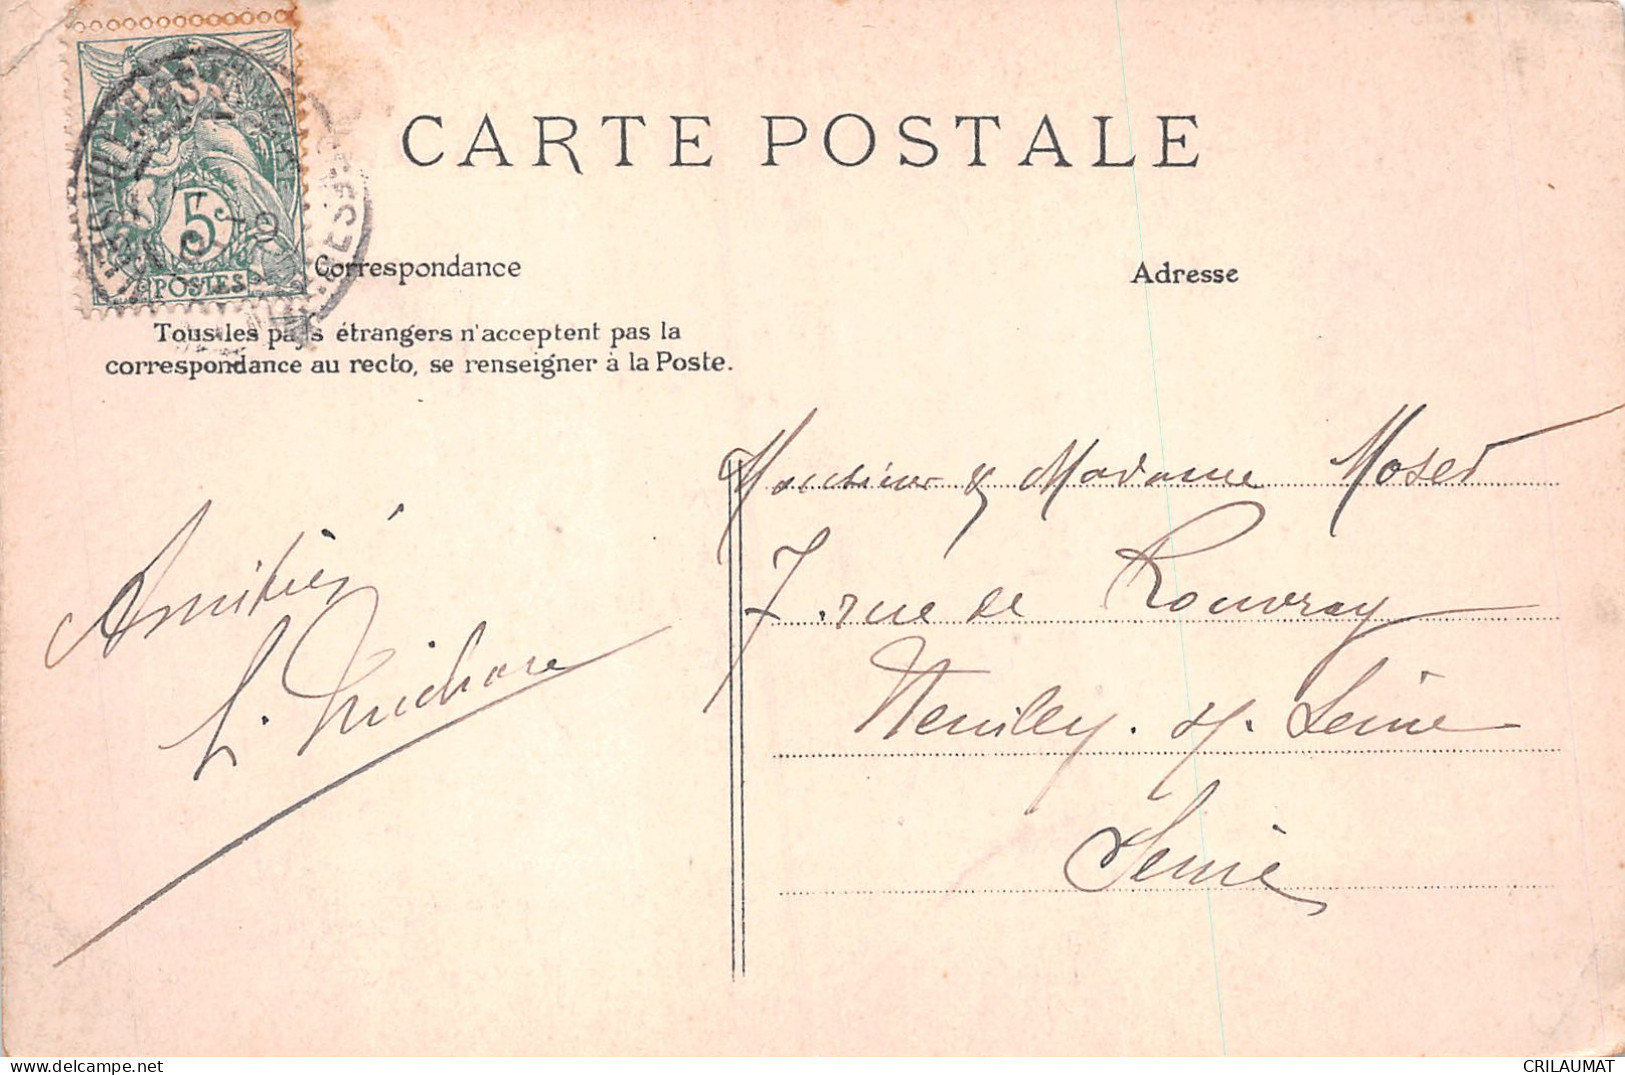 CARTE POSTALE
Correspondance
Adresse
Tous les pays étrangers n'acceptent pas la
correspondance au recto, se renseigner à la Poste.
5c
POSTES
Amitiés
Monsieur & Madame Moser
7 rue de Rouvray
Neuilly . s/. Seine
Seine
CRILAUMAT